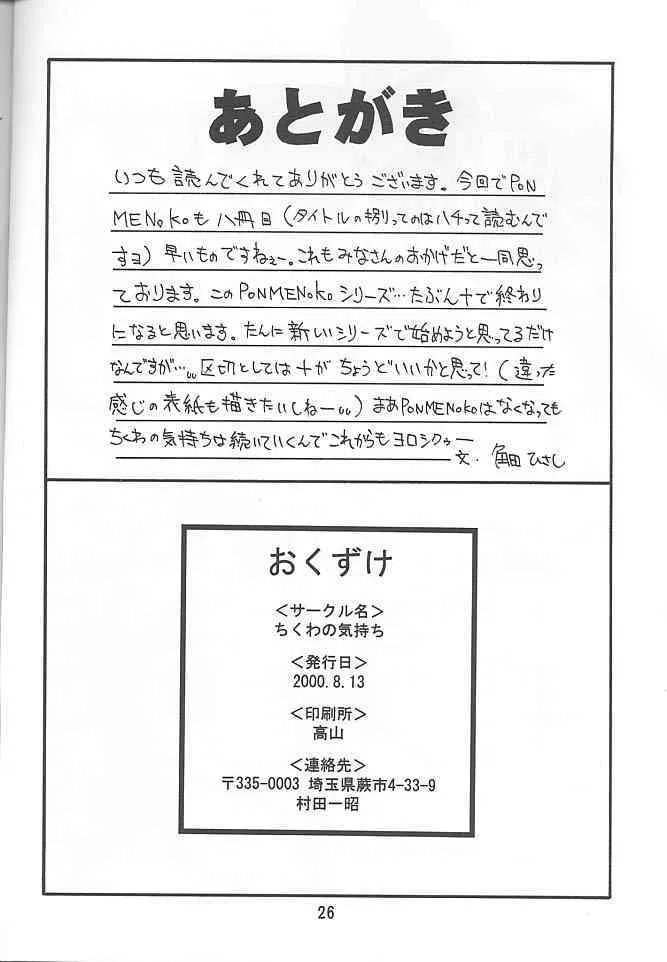 あとがき
いつも読んでくれてありがとうございます。今回でPON
MENOKOも八冊目(タイトルの捌りってのはハチって読むんで
すヨ)早いものですねぇー。これもみなさんのおかげだと一同思っ
ております。このPONMENOKOシリーズ…たぶん十で終わり
になると思います。たんに新しいシリーズで始めようと思ってるだけ
なんですが…。。区切としては十がちょうどいいかと思って!(違った
感じの表紙も描きたいしねー。。)まあPONMENOKOはなくなっても
ちくわの気持ちは続いていくんでこれからもヨロシクゥー
文・角田ひさし
おくずけ
<サークル名>
ちくわの気持ち
<発行日>
2000.8.13
<印刷所>
高山
<連絡先>
〒335-0003 埼玉県蕨市4-33-9
村田一昭
26